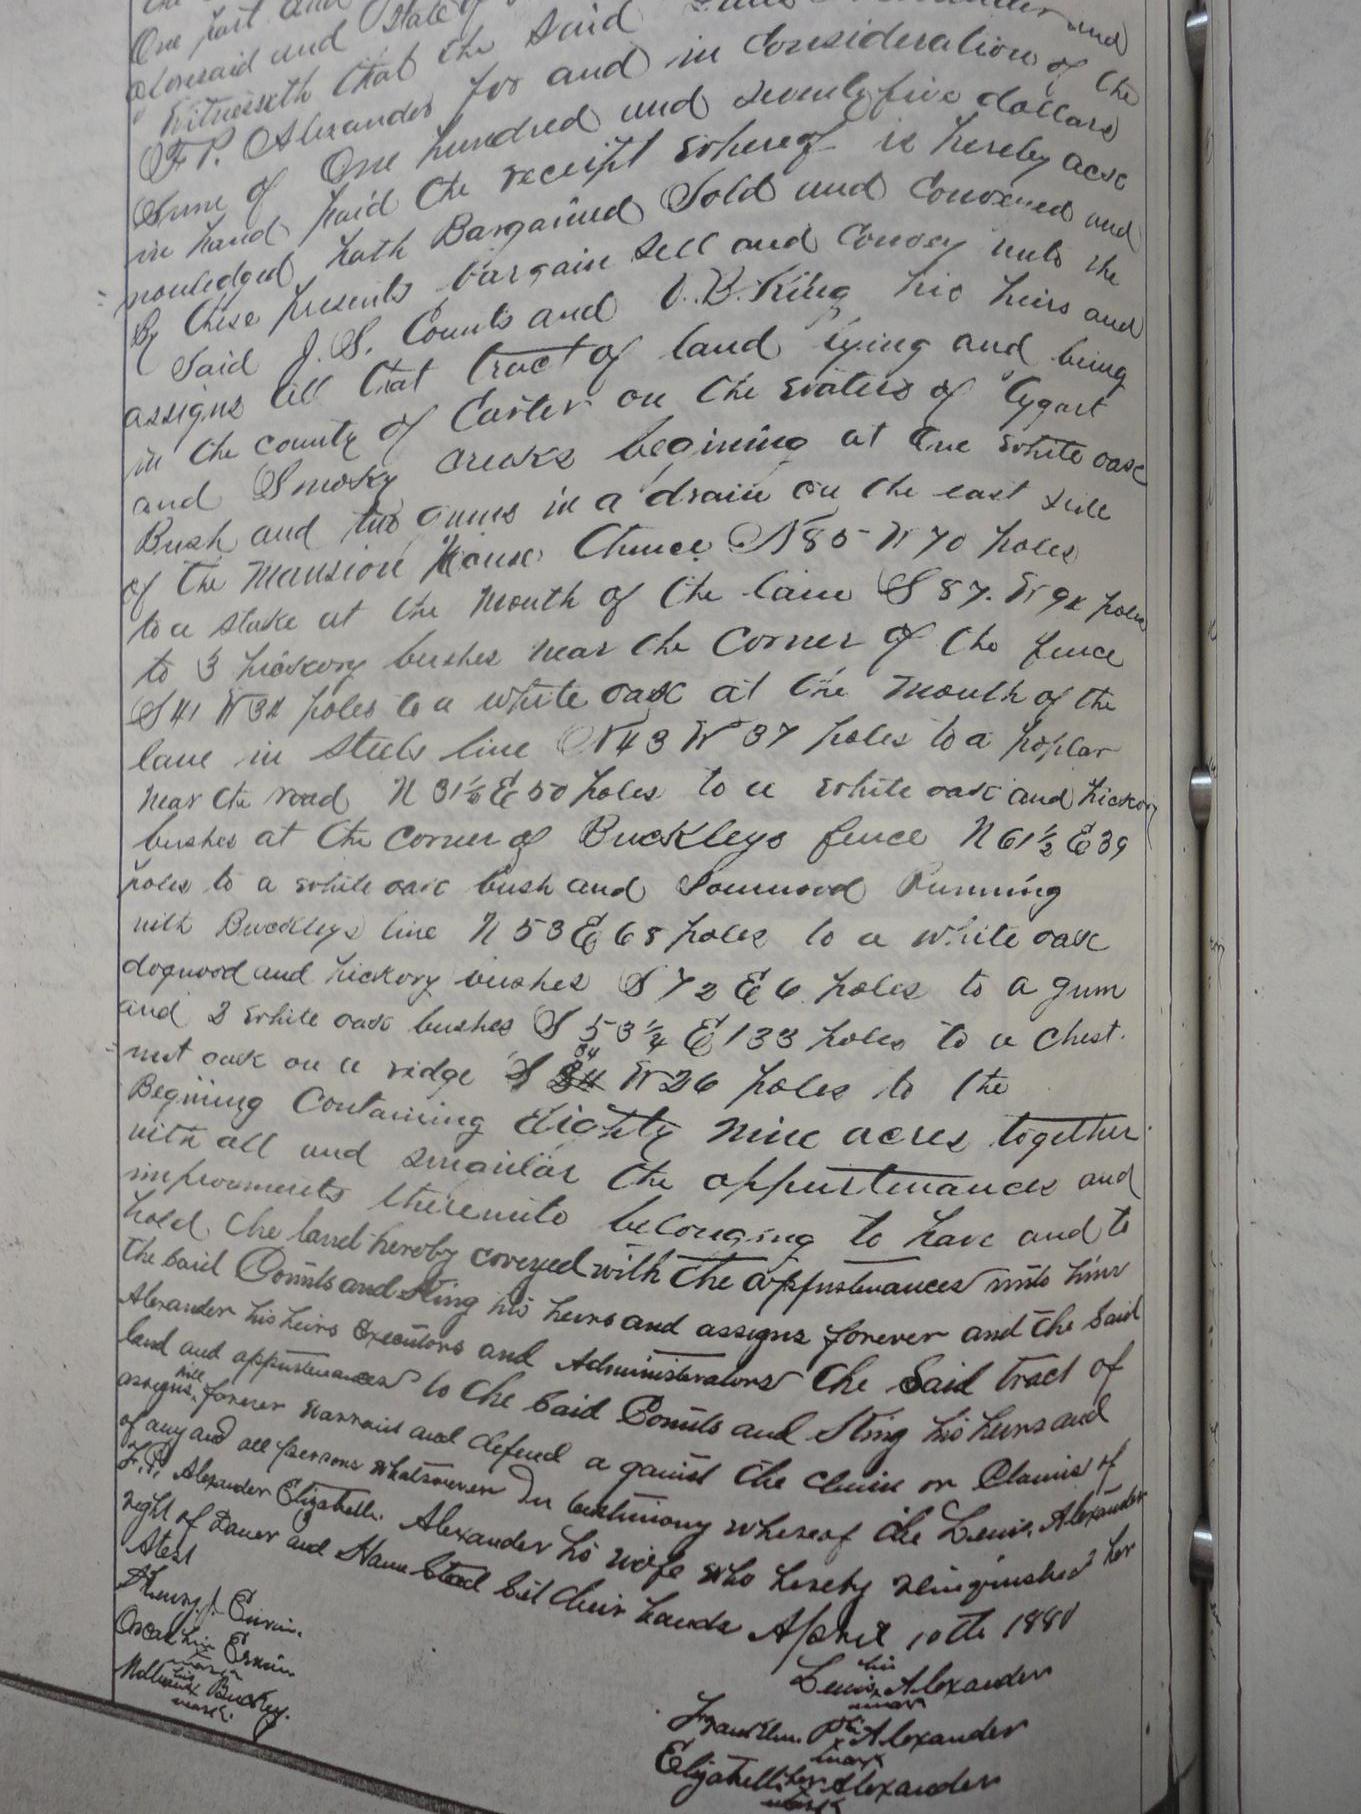 One part and
aforesaid and State of
Witnesseth that the said and
F P. Alexander for and in consideration of the
Sum of One hundred and seventy five dollars
in hand paid the receipt whereof is hereby ack
nowledged hath Bargained Sold and Conveyed and
By these presents bargain sell and Convey unto the
Said J. S. Counts and V. B. King his heirs and
assigns all that tract of land lying and being
in the county of Carter on the waters of Tygart
and Smoky creeks begining at one white oak
Bush and two gums in a drain on the east side
of the Mansion House thence N 85 W 70 poles
to a stake at the Mouth of the lane S 87. W 94 poles
to 3 hickory bushes near the Corner of the fence
S 41 W 34 poles to a white oak at the Mouth of the
lane in steels line N 43 W 37 poles to a poplar
near the road N 31½ E 50 poles to a white oak and hickory
bushes at the corner of Buckleys fence N 61½ E 39
poles to a white oak bush and Sourwood Running
with Buckleys line N 53 E 68 poles to a white oak
dogwood and hickory bushes S 72 E 6 poles to a gum
and 3 white oak bushes S 53¼ E 133 poles to a Chest.
nut oak on a ridge S 34 W 26 poles to the
Begining Containing Eighty Nine acres together
with all and singular the appurtenances and
improvments thereunto belonging to have and to
hold the land hereby coveyed with the appurtenances unto him
the said Counts and King his heirs and assigns forever and the Said
Alexander his heirs Executors and Administrators the Said tract of
land and appurtenances to the Said Counts and King his heirs and
assigns will forever warrant and defend a gainst the claim or Claims of
of any and all persons whatsoever In testimony whereof the Lewis Alexander
F. P. Alexander Elizabeth Alexander his wife who hereby relinquished her
right of Dower and Home Stead set their hands April 10th 1881
Atest
Henry J. Ervin.
Oscar his Ervin
mark
his Buckley.
mark
his
Lewis x Alexander
mark
Franklin P. his x Alexander
mark
Elizabeth her x Alexander
mark